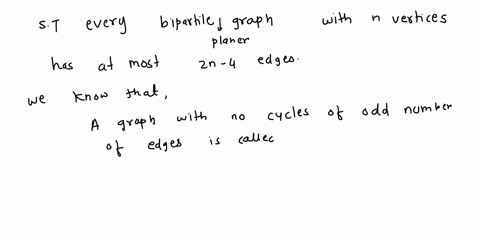 S.T every bipartile↓ graph with n vertices
planer
has at most 2n-4 edges.
we know that,
A graph with no cycles of odd number
of edges is callec